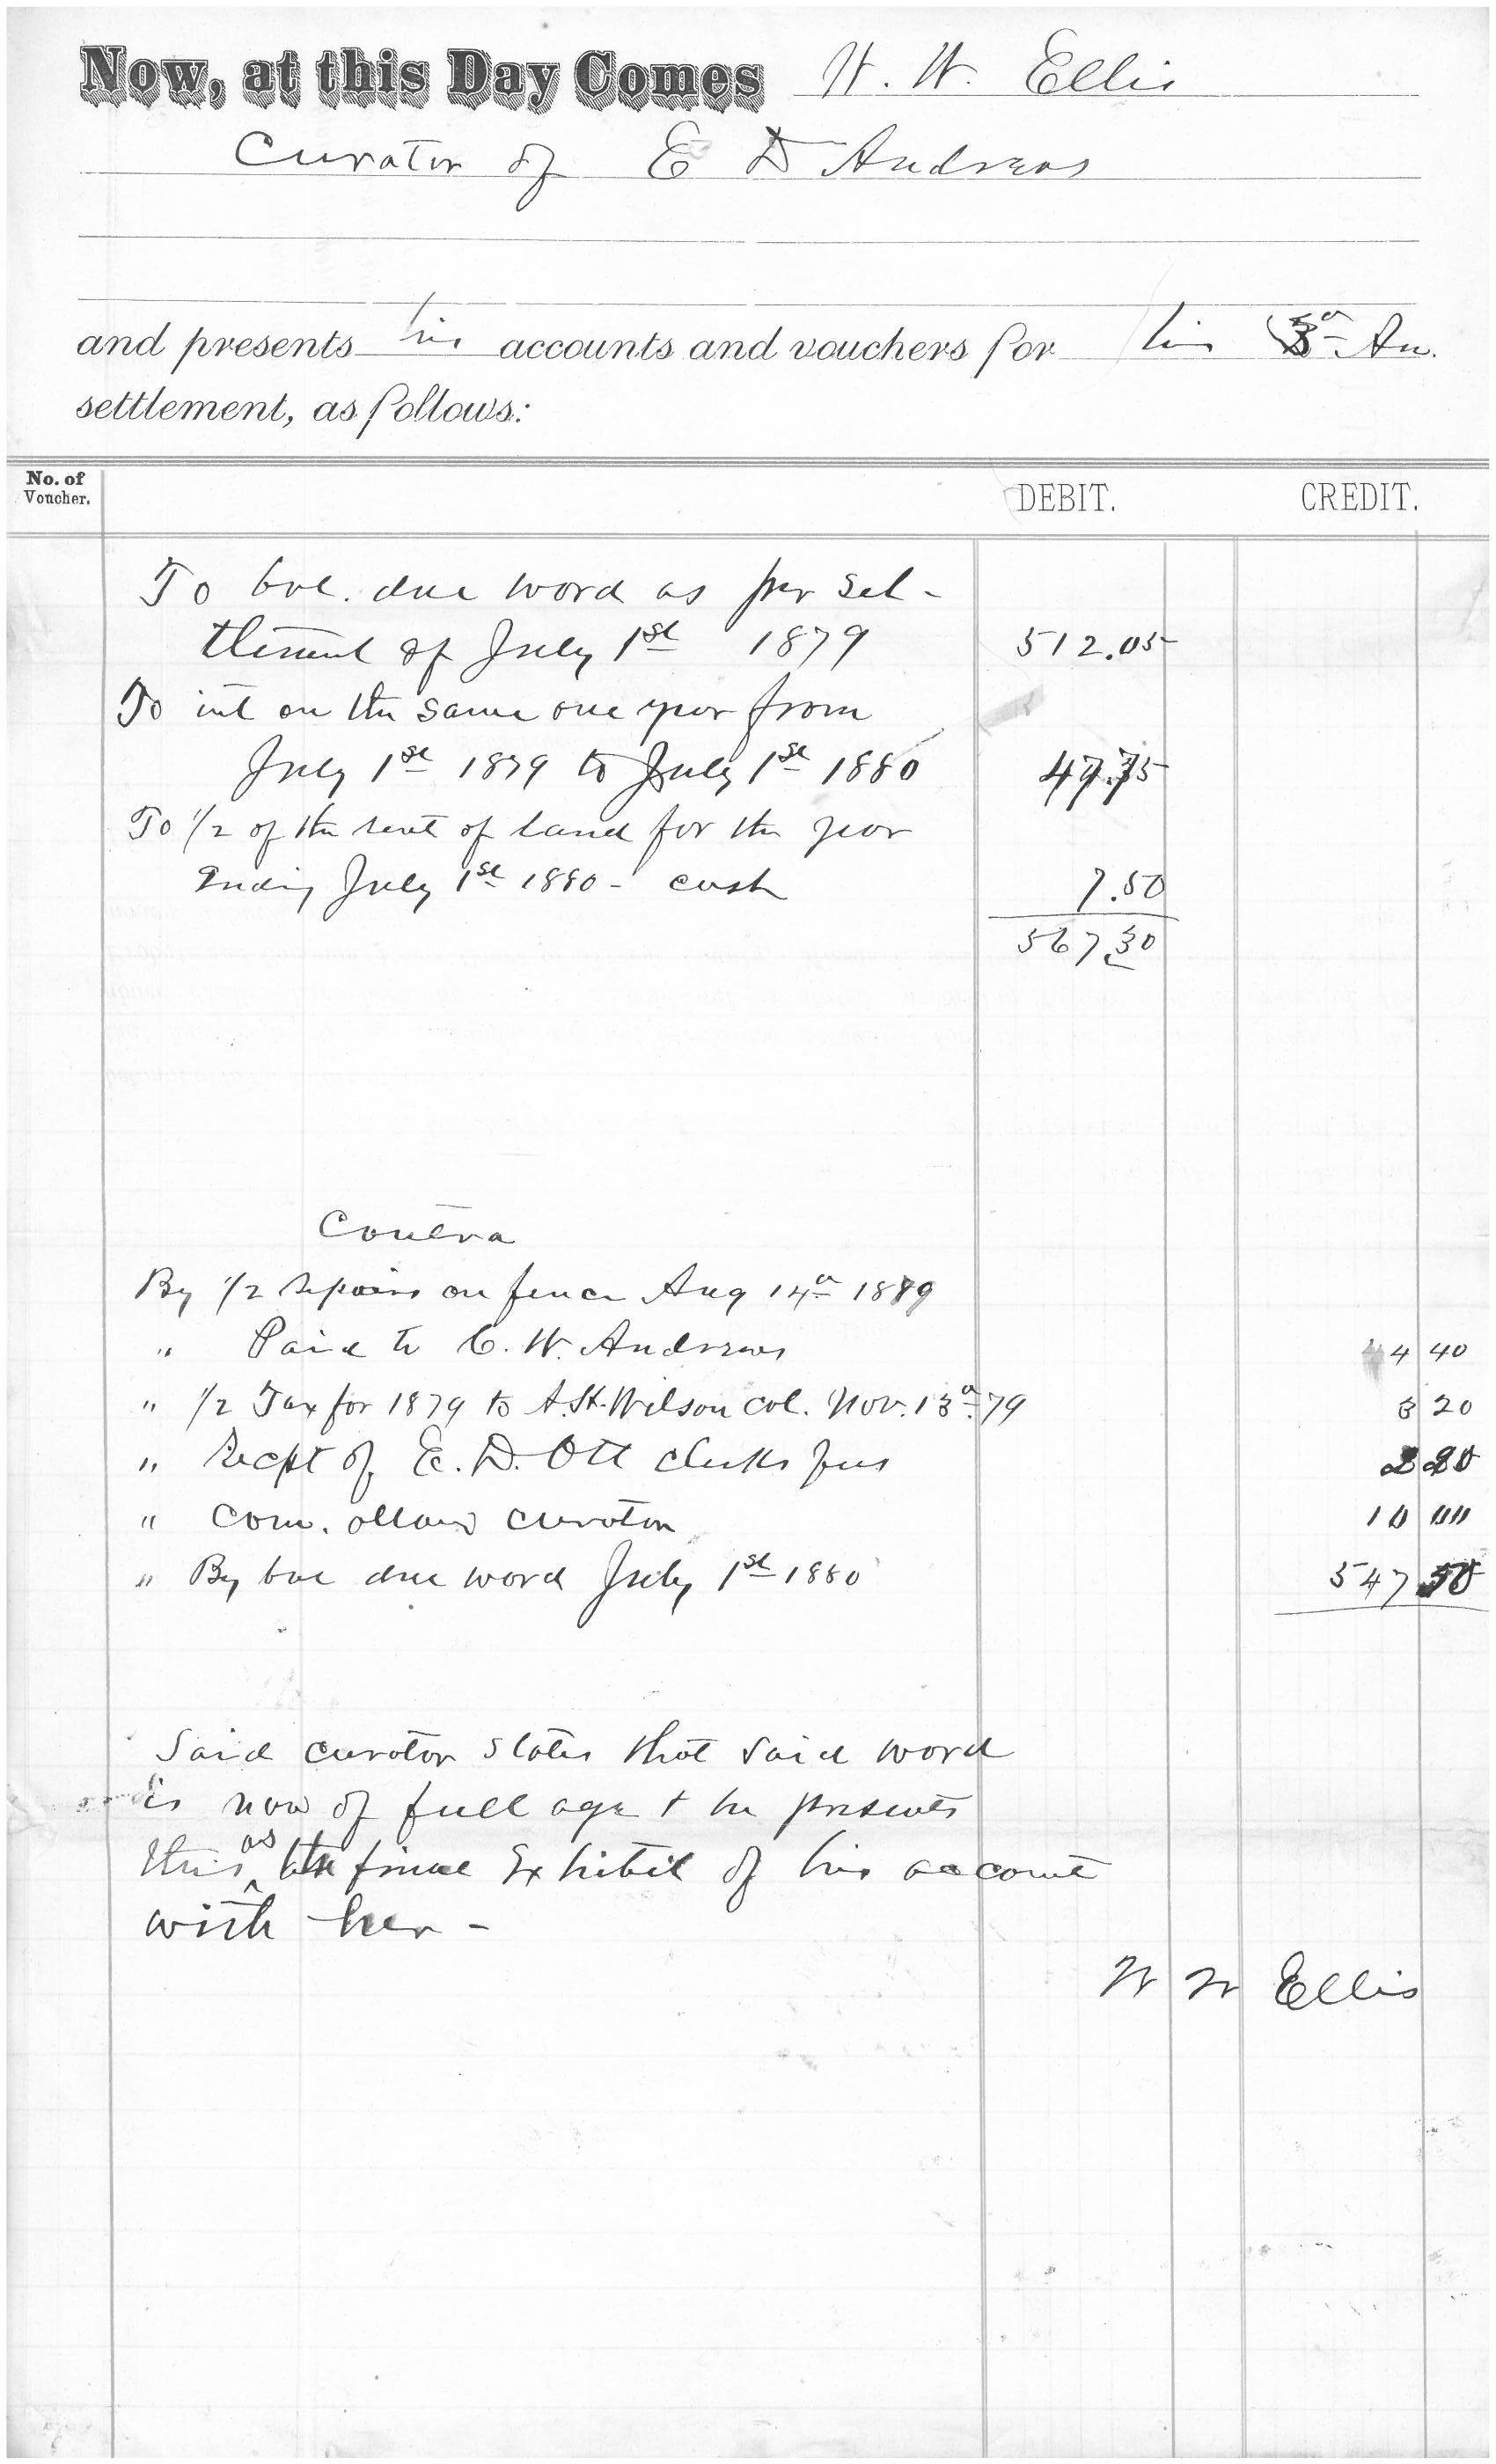 Now, at this Day Comes W. W. Ellis
Curator of E D Andrews
and presents his accounts and vouchers for his An.
settlement, as follows:
No. of Voucher. DEBIT. CREDIT.
To bal. due ward as per set-
tlement of July 1st 1879 512.05
To int on the same one year from
July 1st 1879 to July 1st 1880 47.75
To 1/2 of the rent of land for the year
Ending July 1st 1880 - cash 7.50
567.30
Contra
By 1/2 repairs on fence Aug 14th 1879
" Paid to C. W. Andrews 4 40
" 1/2 Tax for 1879 to A. H. Wilson col. Nov. 13th 79 3 20
" Recpt of E. D. Ott clerks fees 2 20
" Com. allowd curator 10 00
" By bal due ward July 1st 1880 547 50
Said curator states that said ward
is now of full age & he presents
this as the final Exhibit of his account
with her -
W W Ellis